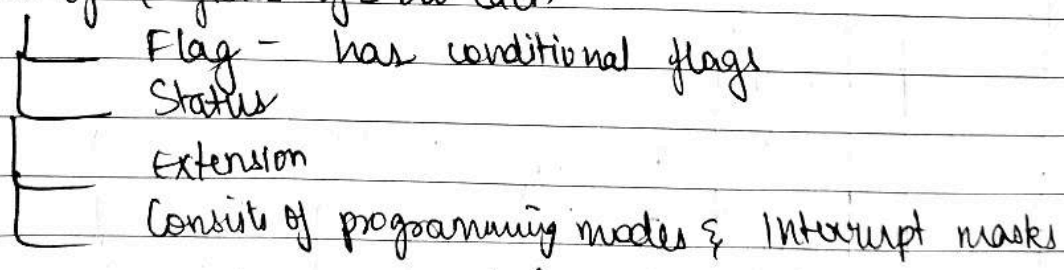 Flag - has conditional flags
Status
Extension
Consists of programming modes & Interrupt masks